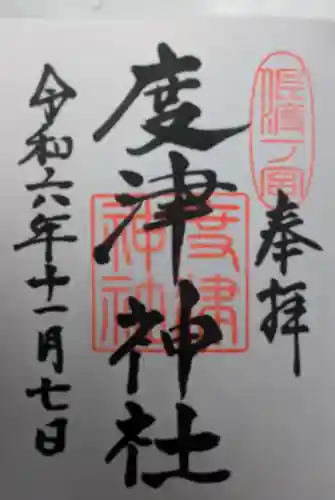 奉拝
佐渡一ノ宮
度津神社
度津神社
令和六年十一月七日